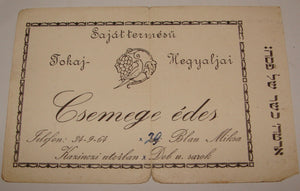 Saját termésü
Tokaj- Hegyaljai
Csemege édes
Telefon: 21-9-61 Blau Miksa
Kazinczi utcában x Dob u. sarok
כשר של פסח